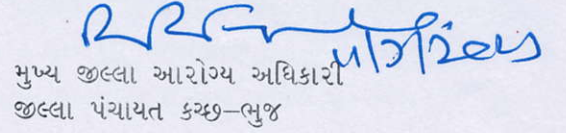 મુખ્ય જીલ્લા આરોગ્ય અધિકારી
જીલ્લા પંચાયત કચ્છ-ભુજ